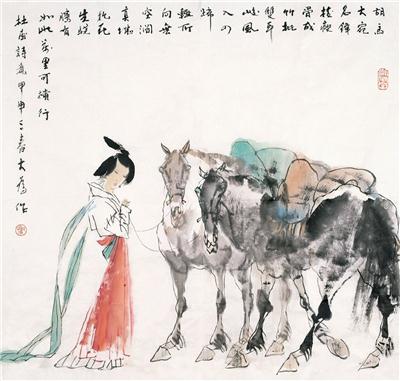 胡馬
大宛
名鋒
棱瘦
骨成
竹批
雙耳
峻風
入四
蹄
輕所
向無
空闊
真堪
托死
生驍
騰有
如此萬里可橫行
杜甫詩意甲申之春大為作